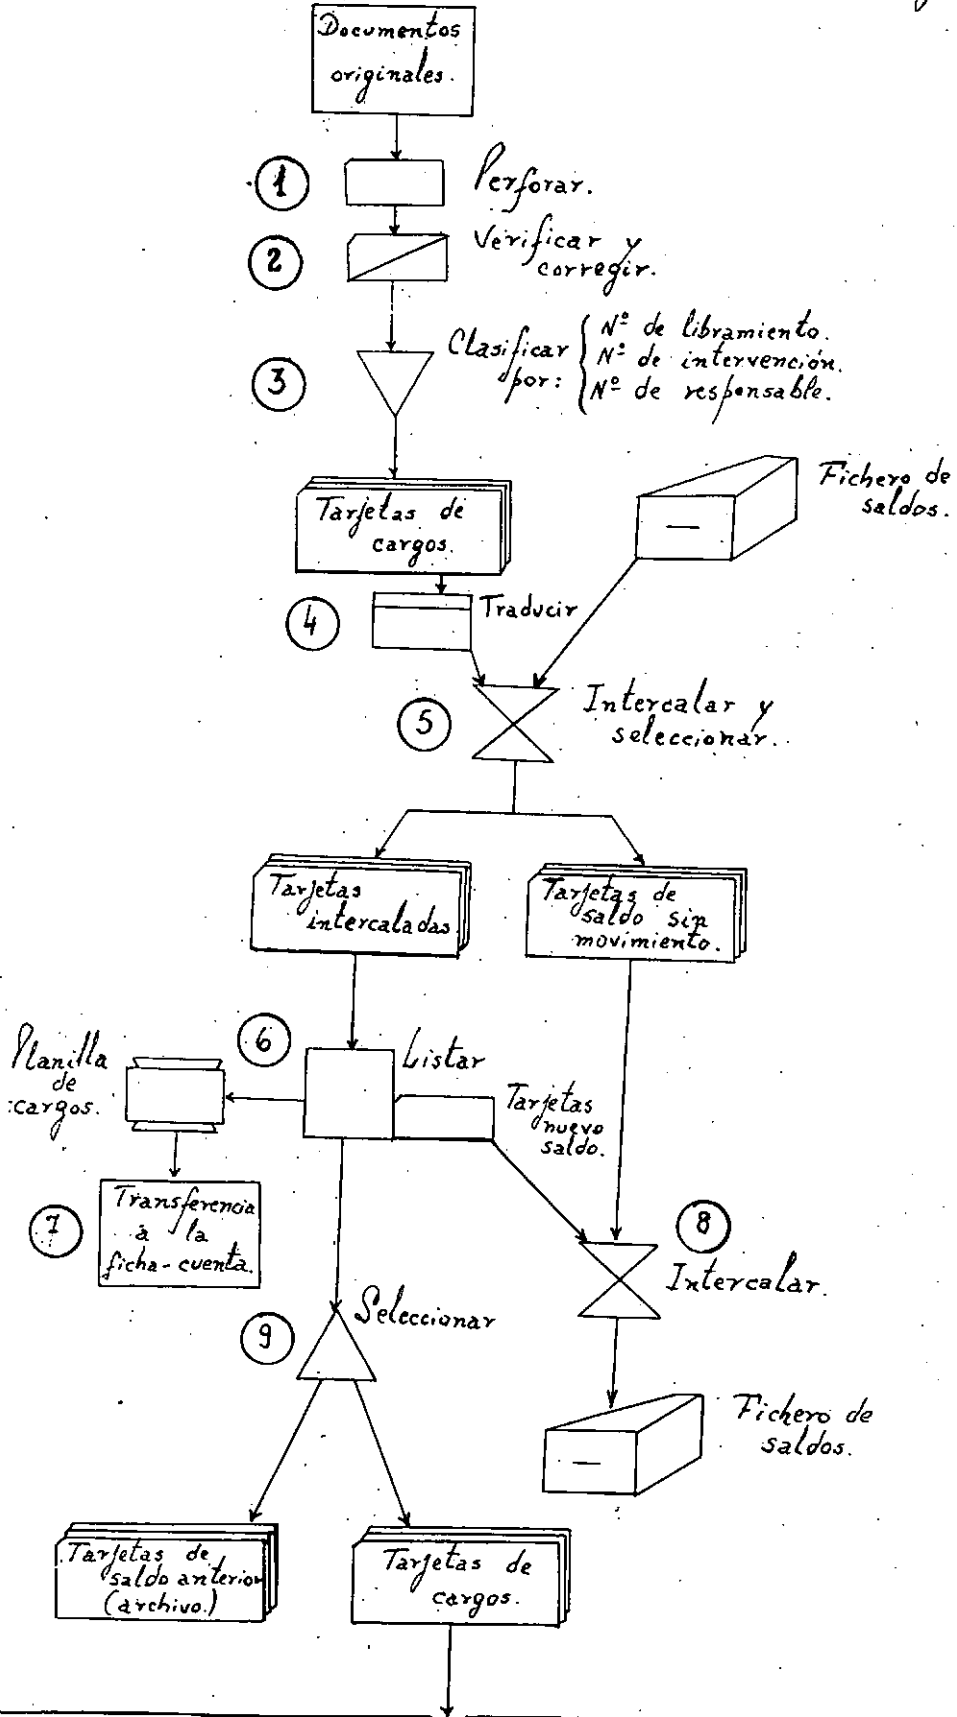 Documentos
originales.
1
Perforar.
2
Verificar y
corregir.
3
Clasificar
por:
Nº de libramiento.
Nº de intervención.
Nº de responsable.
Tarjetas de
cargos.
Fichero de
saldos.
4
Traducir
5
Intercalar y
seleccionar.
Tarjetas
intercaladas
Tarjetas de
saldo sin
movimiento.
6
Listar
Planilla
de
cargos.
Tarjetas
nuevo
saldo.
7
Transferencia
à la
ficha-cuenta.
8
Intercalar.
9
Seleccionar
Fichero de
saldos.
Tarjetas de
saldo anterior
(archivo.)
Tarjetas de
cargos.